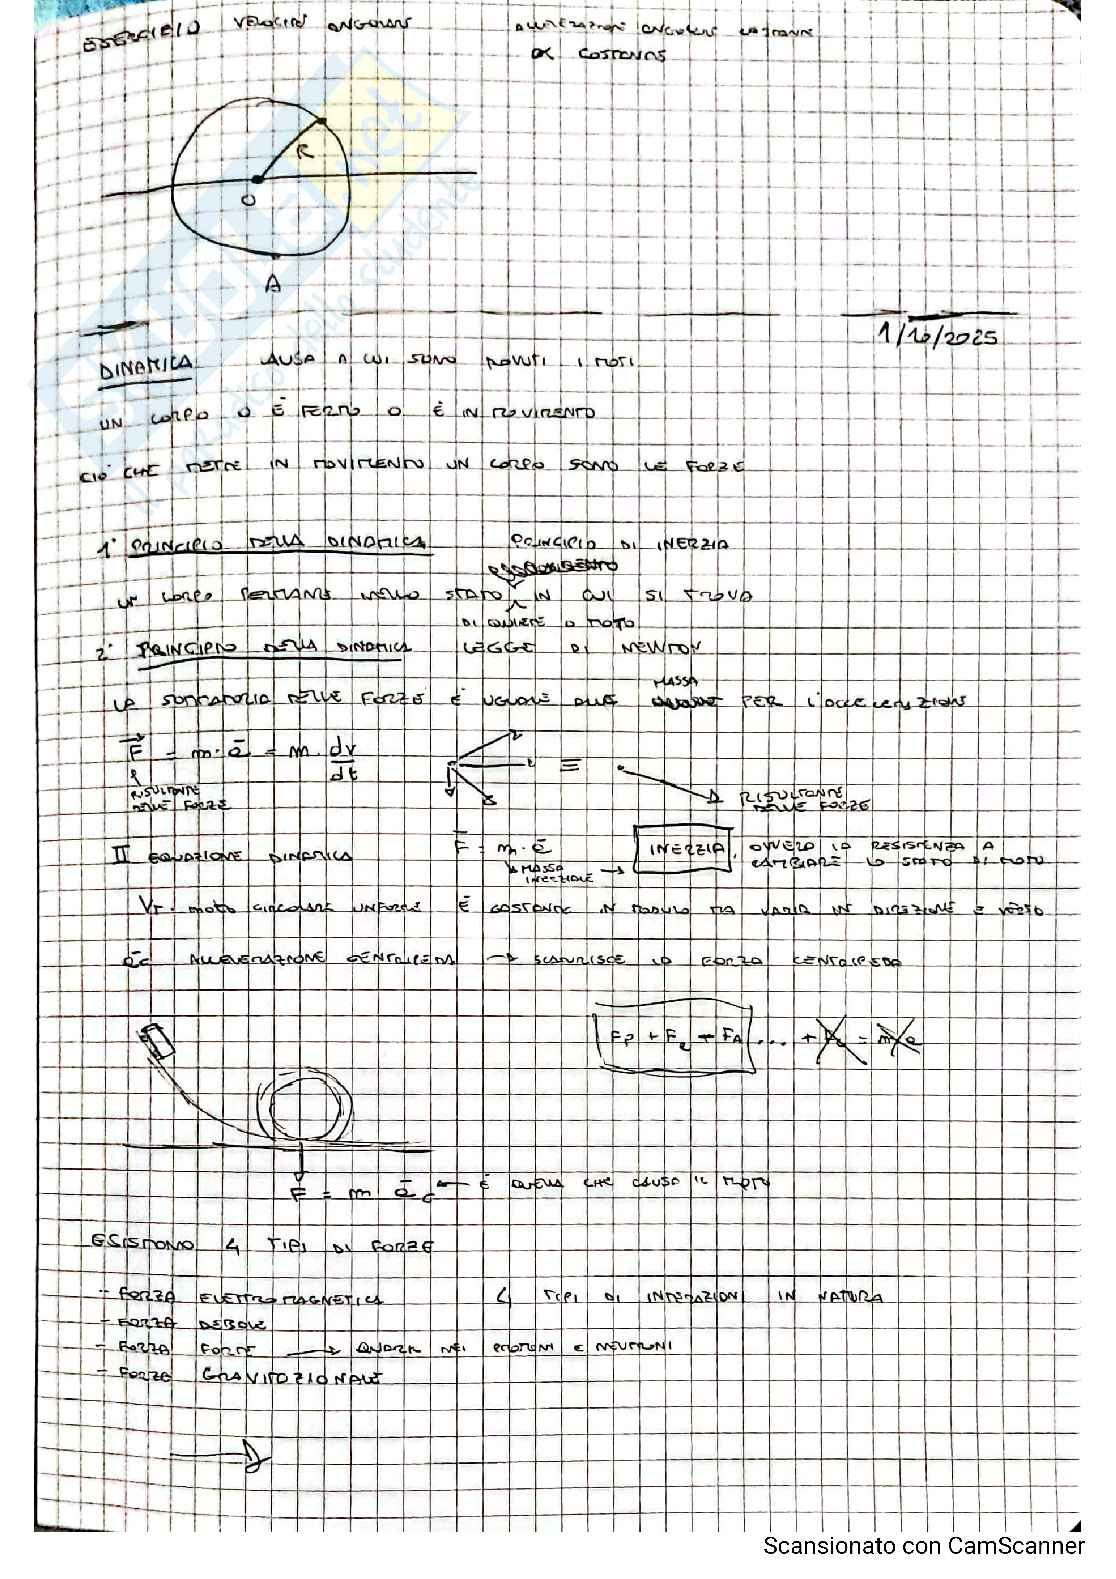 ESERCIZIO VELOCITÀ ANGOLARE
ACCELERAZIONE ANGOLARE COSTANTE
α COSTANTE
R
O
A
1/10/2025
DINAMICA CAUSA A CUI SONO DOVUTI I MOTI
UN CORPO O È FERMO O È IN MOVIMENTO
CIO' CHE METTE IN MOVIMENTO UN CORPO SONO LE FORZE
1° PRINCIPIO DELLA DINAMICA PRINCIPIO DI INERZIA
UN CORPO PERMANE NELLO STATO IN CUI SI TROVA
DI QUIETE O MOTO
2° PRINCIPIO DELLA DINAMICA LEGGE DI NEWTON
MASSA
LA SOMMATORIA DELLE FORZE È UGUALE ALLA PER L'ACCELERAZIONE
F = m · a = m · dv/dt
RISULTANTE
DELLE FORZE
≡
RISULTANTE
DELLE FORZE
II EQUAZIONE DINAMICA F = m · a INERZIA, OVVERO LA RESISTENZA A
CAMBIARE LO STATO DI MOTO
MASSA
INERZIALE →
VT · MOTO CIRCOLARE UNIFORME È COSTANTE IN MODULO MA VARIA IN DIREZIONE E VERSO
ac ACCELERAZIONE CENTRIPETA → SCATURISCE LA FORZA CENTRIPETA
F = m ac ← È QUELLA CHE CAUSA IL MOTO
ESISTONO 4 TIPI DI FORZE
- FORZA ELETTROMAGNETICA 4 TIPI DI INTERAZIONI IN NATURA
- FORZA DEBOLE
- FORZA FORTE → QUARK NEI PROTONI E NEUTRONI
- FORZA GRAVITAZIONALE
Scansionato con CamScanner